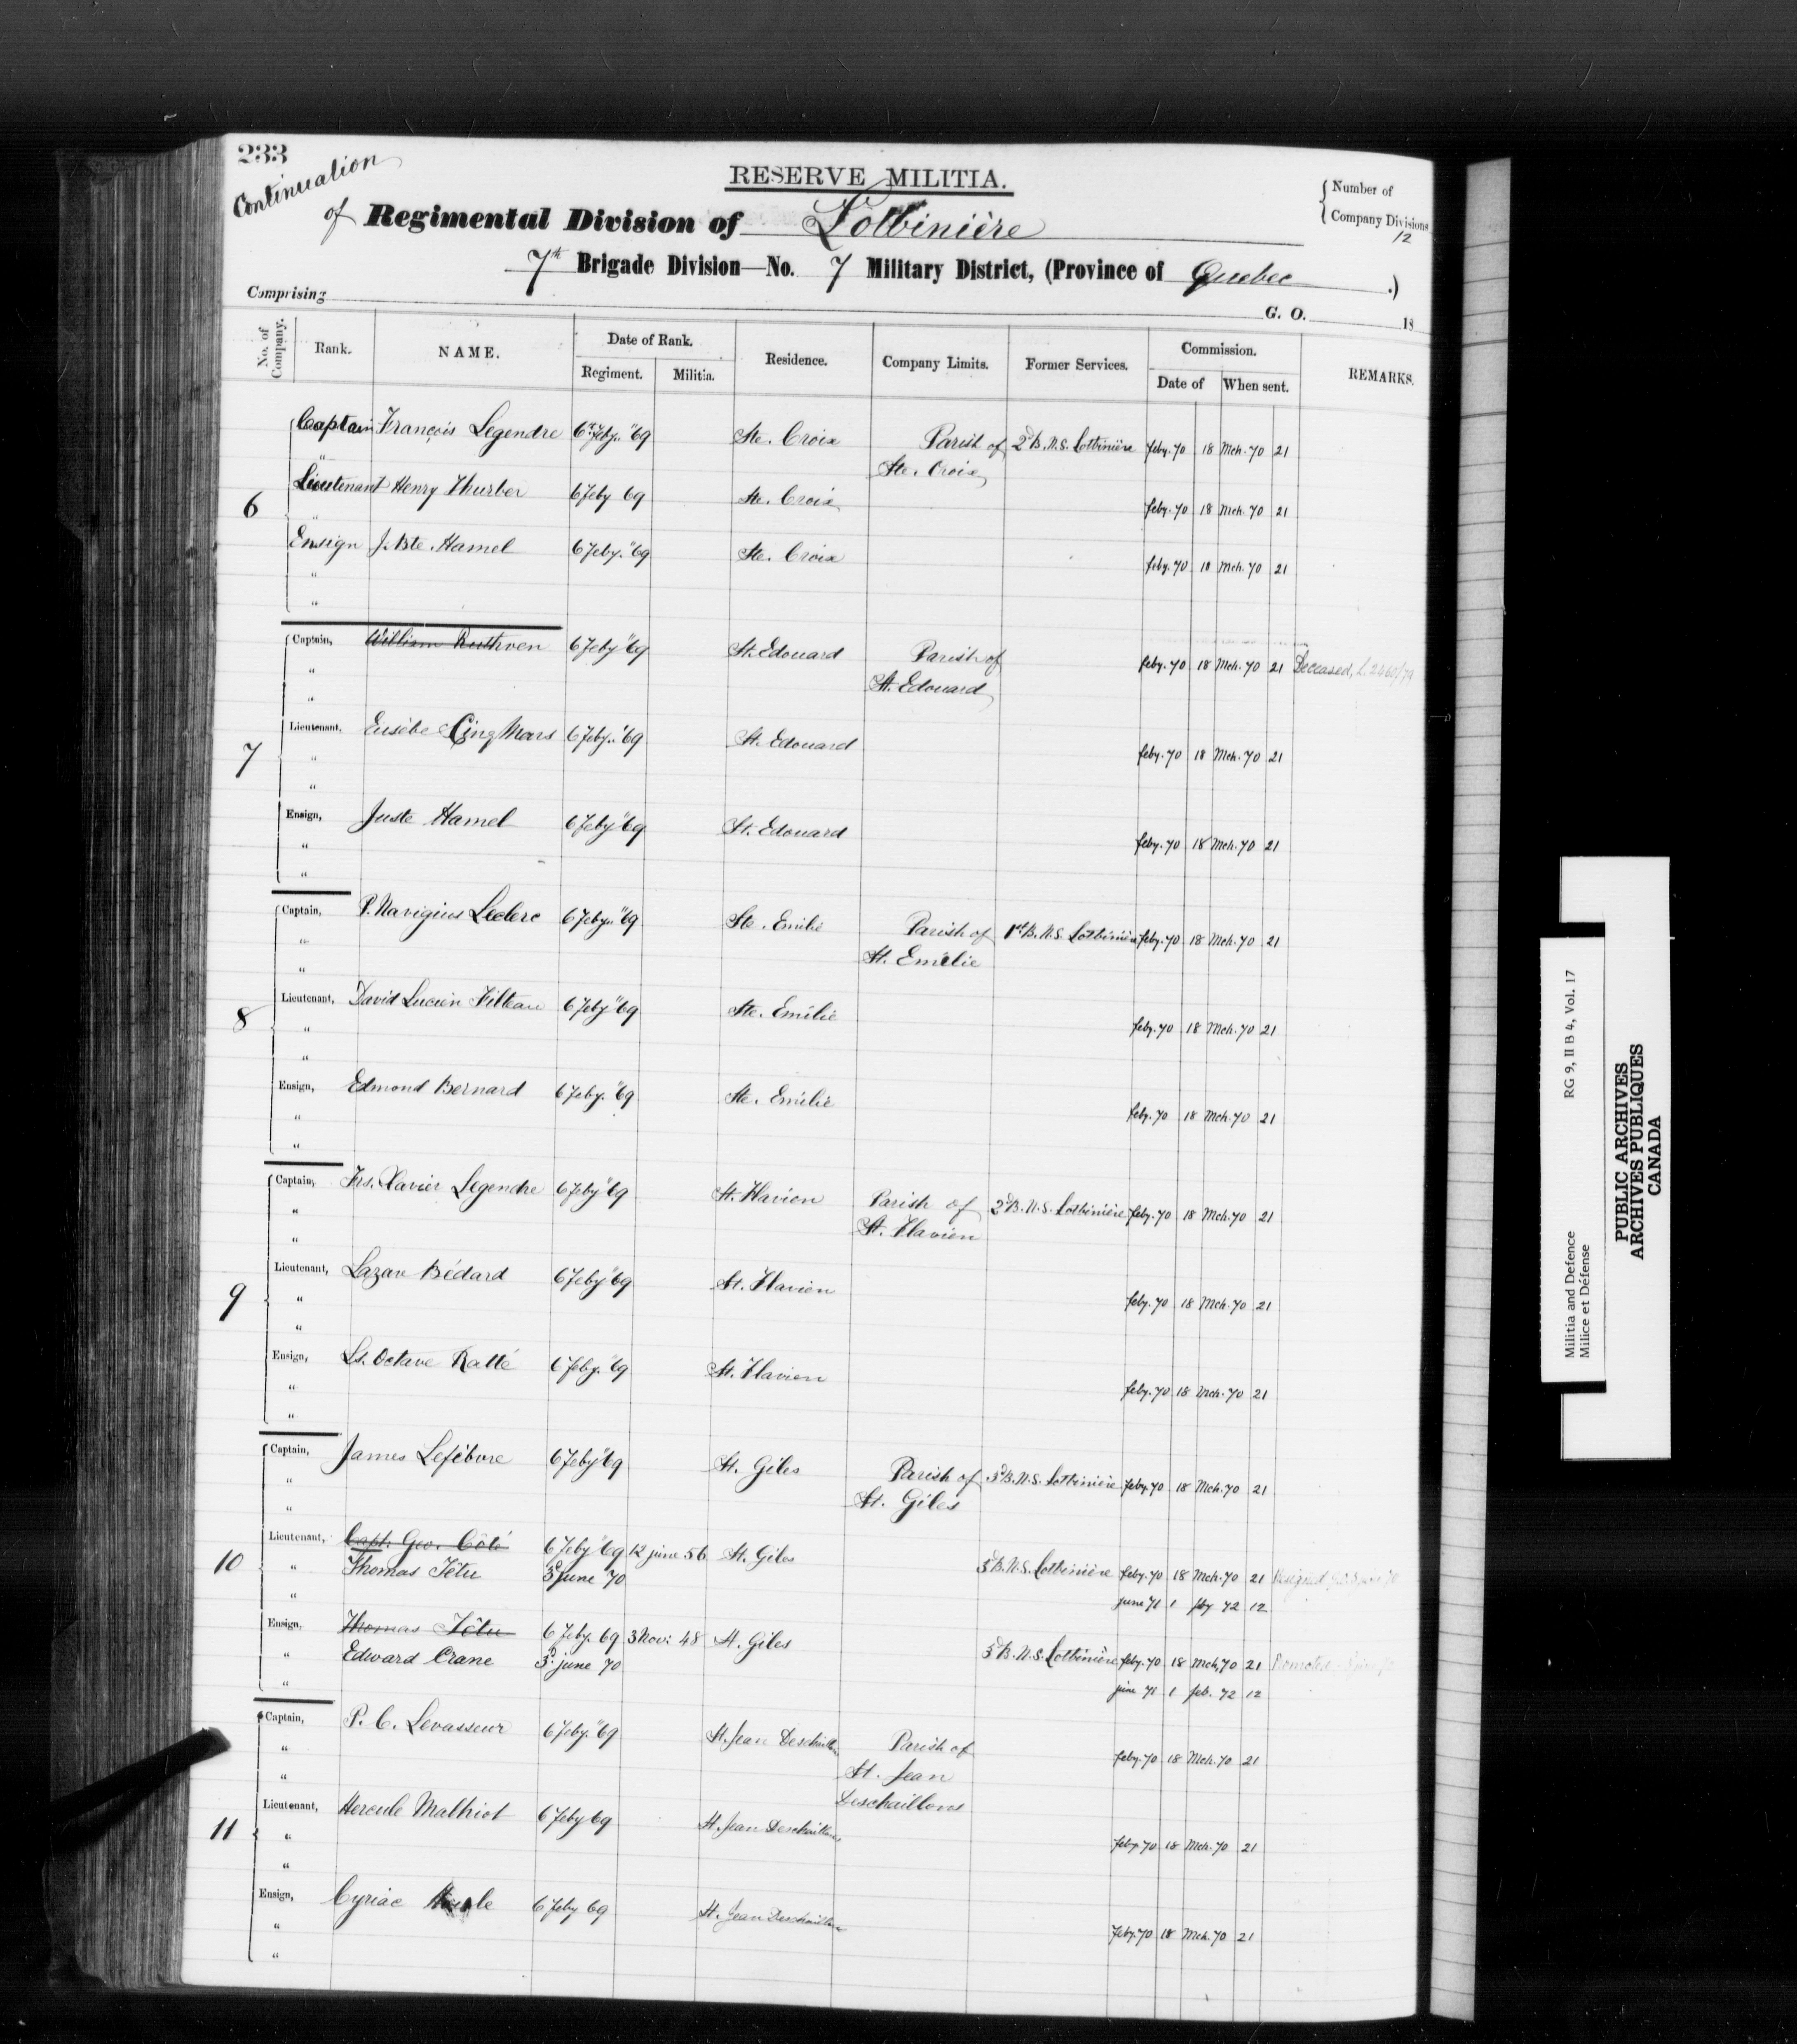 233
Continuation
RESERVE MILITIA.
of Regimental Division of Lotbinière
Number of Company Divisions 12
7th Brigade Division—No. 7 Military District, (Province of Quebec .)
Comprising
G. O. 18
No. of Company. Rank. NAME. Date of Rank. Residence. Company Limits. Former Services. Commission. REMARKS.
Regiment. Militia. Date of When sent.
Captain François Legendre 6 Feby. "69 Ste. Croix Parish of 2d B. N.S. Lotbinière feby. 70 18 Mch. 70 21
" Ste. Croix
6 Lieutenant Henry Thurber 6 Feby 69 Ste. Croix feby. 70 18 Mch. 70 21
Ensign J. Bte. Hamel 6 Feby. "69 Ste. Croix feby. 70 18 Mch. 70 21
"
"
Captain, William Ruthven 6 Feby "69 St. Edouard Parish of feby. 70 18 Mch. 70 21 Deceased,
" St. Edouard
"
7 Lieutenant, Eusèbe Cinq Mars 6 Feby. "69 St. Edouard feby. 70 18 Mch. 70 21
"
"
Ensign, Juste Hamel 6 Feby "69 St. Edouard feby. 70 18 Mch. 70 21
"
"
Captain, P. Navigius Leclerc 6 Feby. "69 Ste. Emilie Parish of 1st B. N.S. Lotbinière feby. 70 18 Mch. 70 21
" St. Emélie
"
8 Lieutenant, David Lucien Filteau 6 Feby "69 Ste. Emilie feby. 70 18 Mch. 70 21
"
"
Ensign, Edmond Bernard 6 Feby. "69 Ste. Emélie feby. 70 18 Mch. 70 21
"
"
Captain, Frs. Xavier Legendre 6 Feby "69 St. Flavien Parish of 2d B. N.S. Lotbinière feby. 70 18 Mch. 70 21
" St. Flavien
"
9 Lieutenant, Lazare Bédard 6 Feby "69 St. Flavien feby. 70 18 Mch. 70 21
"
"
Ensign, Ls. Octave Ratté 6 Feby. "69 St. Flavien feby. 70 18 Mch. 70 21
"
"
Captain, James Lefebvre 6 Feby "69 St. Giles Parish of 3d B. N.S. Lotbinière feby. 70 18 Mch. 70 21
" St. Giles
"
10 Lieutenant, Capt. Geo. Côté 6 Feby "69 12 june 56 St. Giles 3d B. N.S. Lotbinière feby. 70 18 Mch. 70 21 Resigned
" Thomas Têtu 3d june 70 june 71 1 feby 72 12
"
Ensign, Thomas Têtu 6 Feby. 69 3 Nov: 48 St. Giles 3d B. N.S. Lotbinière feby. 70 18 Mch, 70 21 Promoted
" Edward Crane 3d. june 70 june 71 1 feb. 72 12
"
Captain, P. C. Levasseur 6 Feby. "69 St. Jean Deschaillons Parish of feby. 70 18 Mch. 70 21
" St. Jean
" Deschaillons
11 Lieutenant, Hercule Mathiot 6 Feby 69 St. Jean Deschaillons feby. 70 18 Mch. 70 21
"
"
Ensign, Cyriac 6 Feby 69 St. Jean Deschaillons feby. 70 18 Mch. 70 21
"
"
Militia and Defence RG 9, II B 4, Vol. 17
Milice et Défense
PUBLIC ARCHIVES
ARCHIVES PUBLIQUES
CANADA